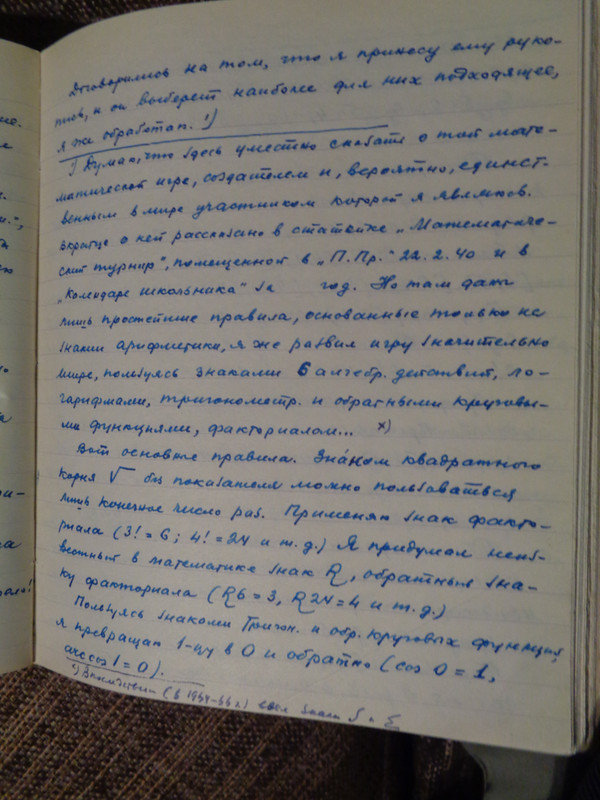 Договорились на том, что я приношу ему руко-
пись, и он выберет наиболее для них подходящее,
я же обработал. ¹)
¹) Думаю, что здесь уместно сказать о той мате-
матической игре, создателем и, вероятно, единст-
венным в мире участником которой я являюсь.
Вкратце о ней рассказано в статейке „Математиче-
ский турнир", помещенной в „П.Пр." 22.2.40 и в
„Календаре школьника" за год. Но там даны
лишь простейшие правила, основанные только на
знании арифметики, я же развил игру значительно
шире, пользуясь знаками 6 алгебр. действий, ло-
гарифмами, тригонометр. и обратными круговы-
ми функциями, факториалом... х)
Вот основные правила. Знáком квадратного
корня √ без показателя можно пользоваться
лишь конечное число раз. Применяя знак факто-
риала (3! = 6; 4! = 24 и т.д.) Я придумал неиз-
вестный в математике знак R, обратный зна-
ку факториала (R6 = 3, R24 = 4 и т.д.)
Пользуясь знаками тригон. и обр. круговых функций,
я превращаю 1-цу в 0 и обратно (cos 0 = 1,
arc cos 1 = 0).
(в 1954-55 г) знаки S и Σ